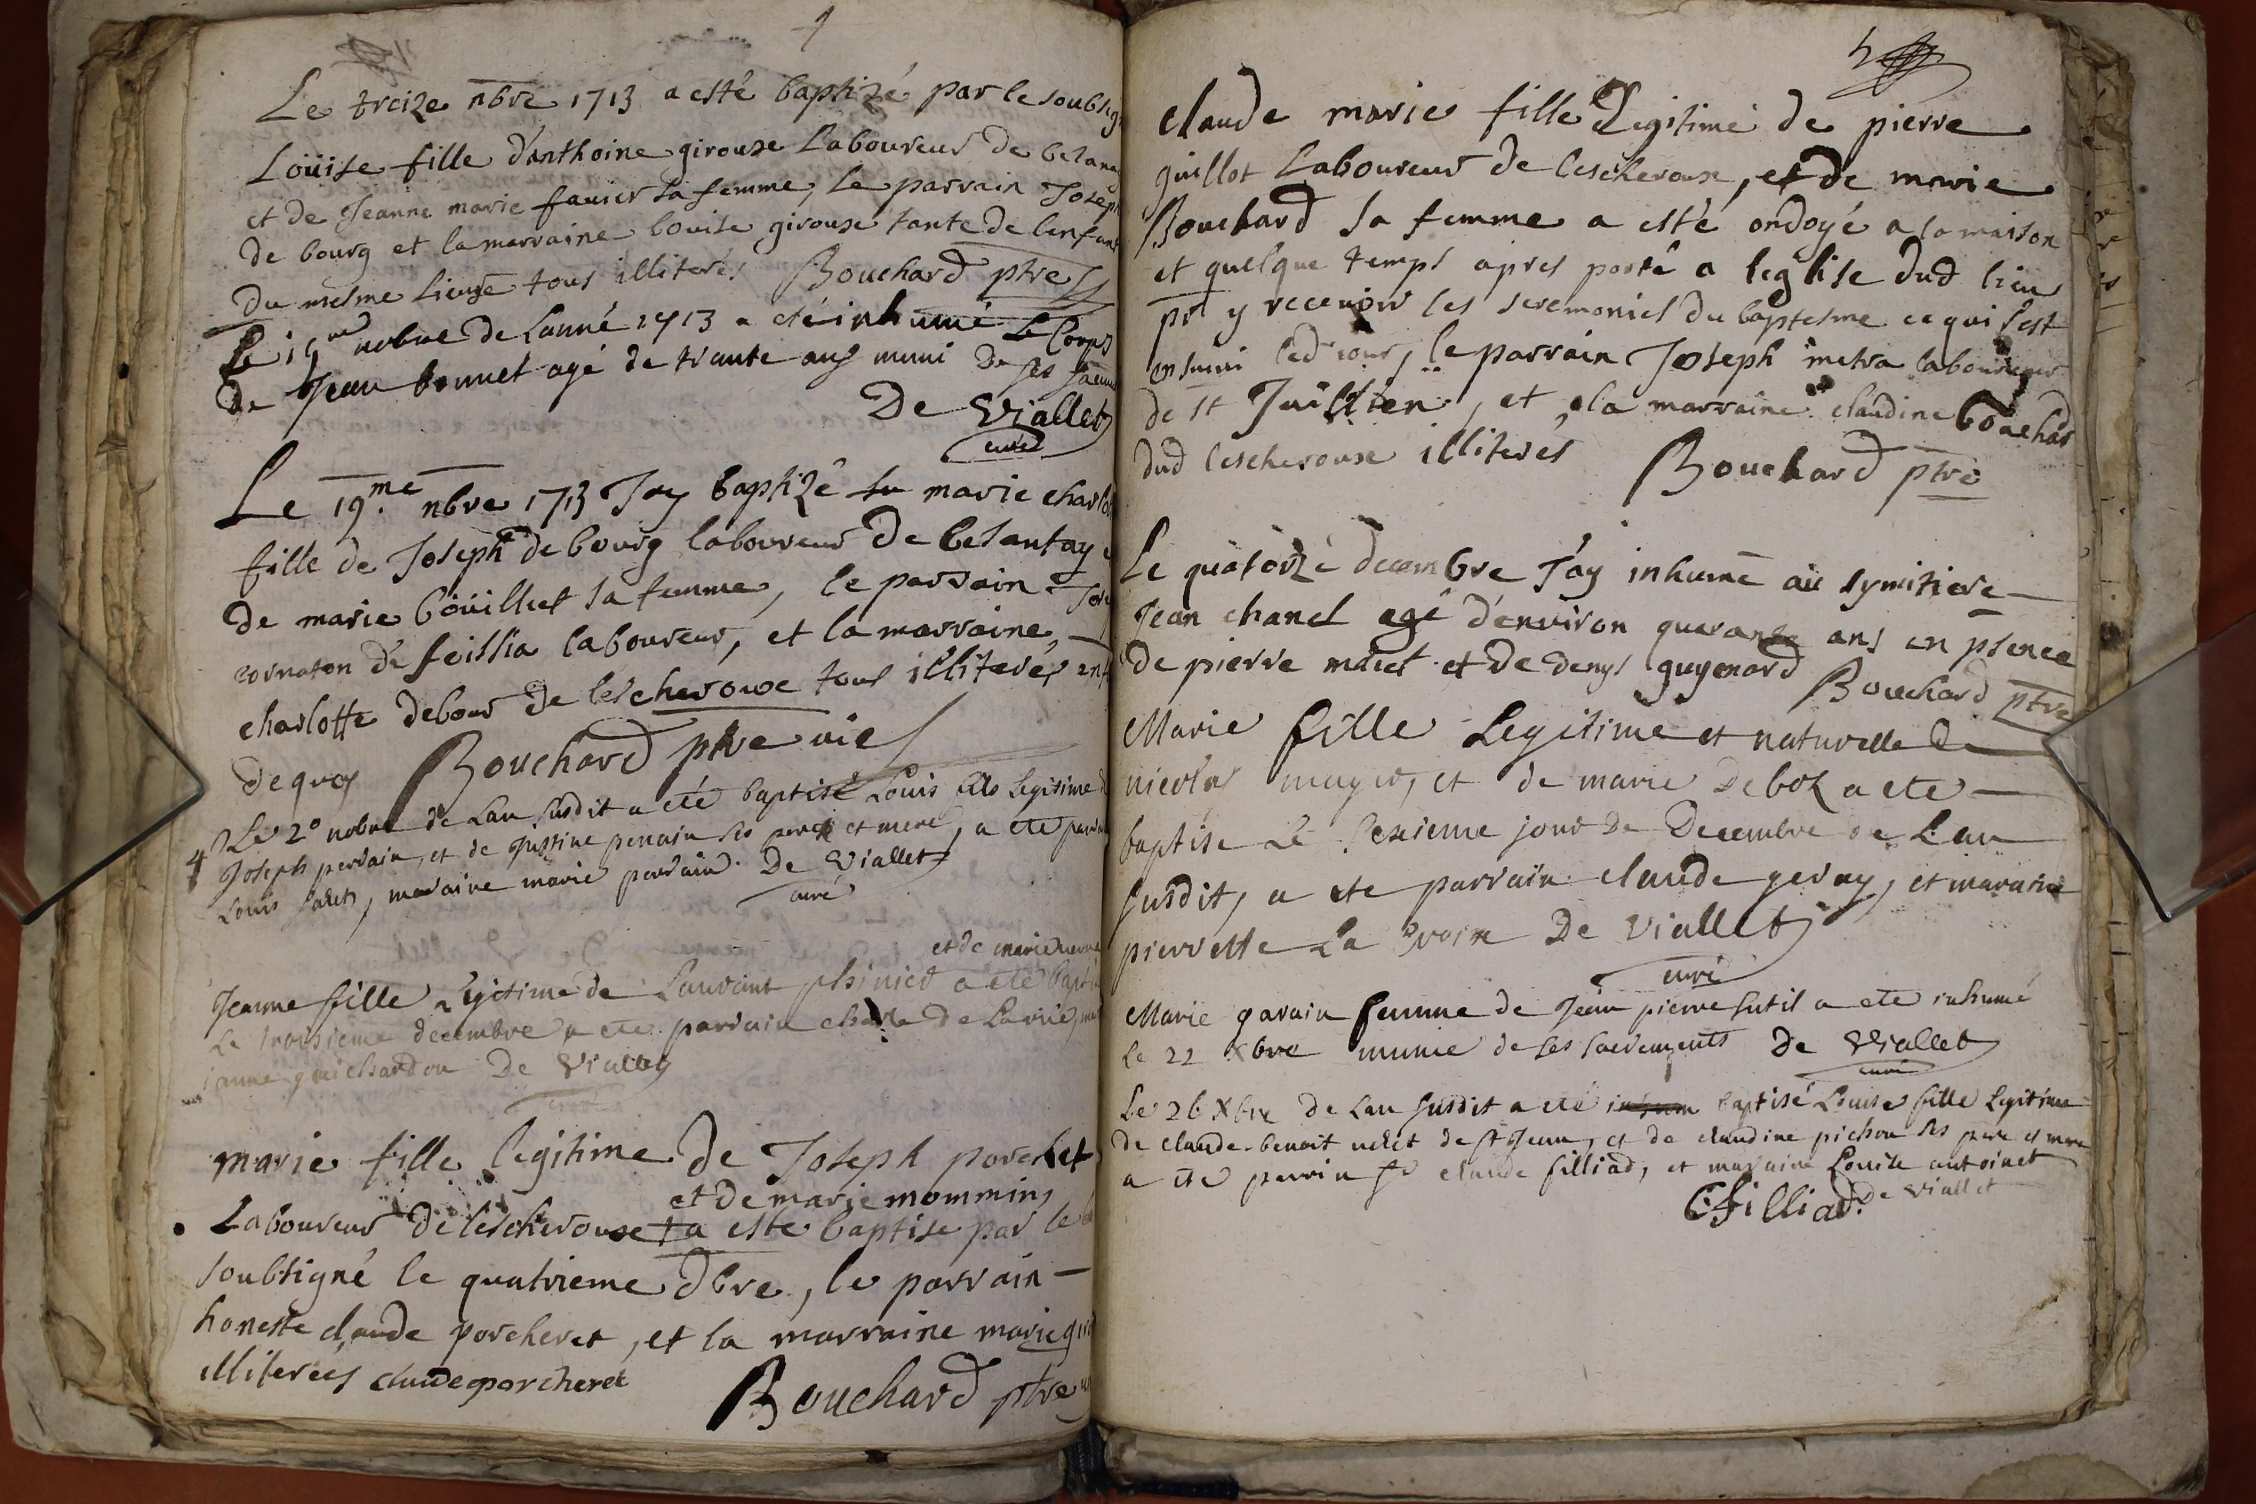 4
Le treize nbre 1713 a esté baptizé par le soubsig
Loüise fille d'anthoine girouse Laboureur de besana
et de Jeanne marie favier sa femme, le parrain Joseph
de bourg et la marraine louise girouse tante de lenfant
du mesme lieu tous illiterés Bouchard ptre
Le nobre de Lanné 1713 a eté inhumé Le Corps
de Jean bonnet agé de trante ans muni de ses sacrem
De Viallet
curé
Le 19.me nbre 1713 Jay baptizé marie charlot
fille de Joseph de bourg laboureur de besantay
de marie boüillet sa femme, le parrain Jos
cornaton de feillia laboureur, et la marraine
charlotte debour de lescherouse tous illiterés
de quoy Bouchard ptre vic
Le 2° nobre de Lan susdit a eté baptisé Louis fils Legitime d
4 Joseph perdrain, et de Justine perrain ses pere et mere, a eté parrain
Louis , maraine marie perrain. De Viallet
curé
et de marie
Jeanne fille Legitime de Laurant phinied a eté bapti
Le troisieme decembre a ete parrain charle de Lavrie
janne guichardon De Viallet
curé
marie fille legitime de Joseph porchet
et de marie mommin
Laboureur de lescherouse + a este baptise par le
soubsigné le quatrieme dbre, le parrain
honeste claude porcheret, et la marraine marie
illiterées claude porcheret
Bouchard ptre
claude marie fille Legitime de pierre
guillot Laboureur de lescherouse, et de marie
Bouchard sa femme a esté ondoyé a sa maison
et quelque temps apres porté a leglise dud lieu
pr y recevoir les seremonies du baptesme ce qui s'est
ensuivi led jour, le parrain Joseph metra laboureur
de st Juillien, et la marraine claudine bouchar
dud lescherouse illiterés Bouchard ptre
Le quatorze decembre J'ay inhumé au symitiere
Jean chanel agé d'environ quarante ans en psence
de pierre maiet et de denys guyenard
Bouchard ptre
Marie fille Legitime et naturelle de
nicolas mugie, et de marie deboz a ete
baptise Le sexieme jour de Decembre de Lan
susdit, a ete parrain claude gevay, et maraine
pierrette La De Viallet
curé
Marie gavain femme de Jean pierre sutil a ete inhumé
le 22 Xbre munie de ses sacrements De Viallet
curé
Le 26 Xbre de Lan susdit a eté inhum baptisé Louise fille Legitime
de claude benoit de st Jean, et de claudine pichon ses pere et mere
a ete parrin sr claude filliad, et maraine Louise antoinet
CFilliad. De Viallet